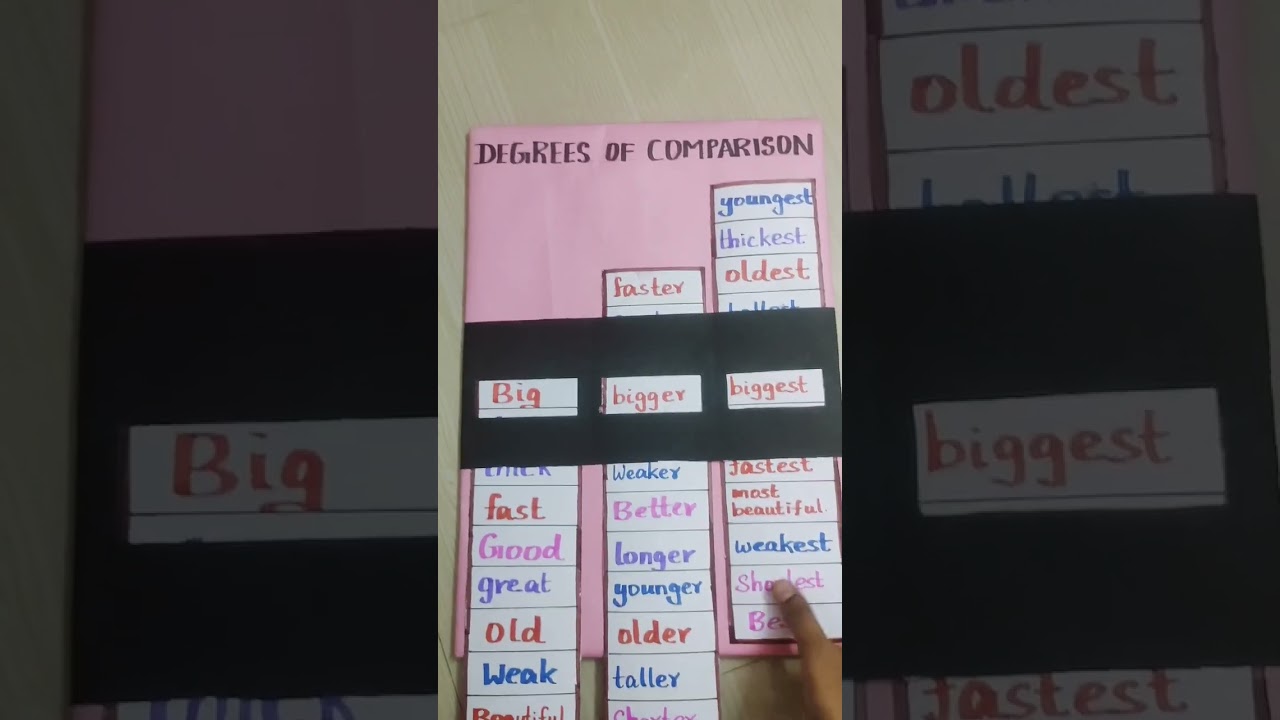 Big
DEGREES OF COMPARISON
Big
fast
Good
great
old
Weak
Beautiful
faster
bigger
Weaker
Better
longer
younger
older
taller
youngest
thickest
oldest
biggest
fastest
most
beautiful.
weakest
oldest
biggest
fastest